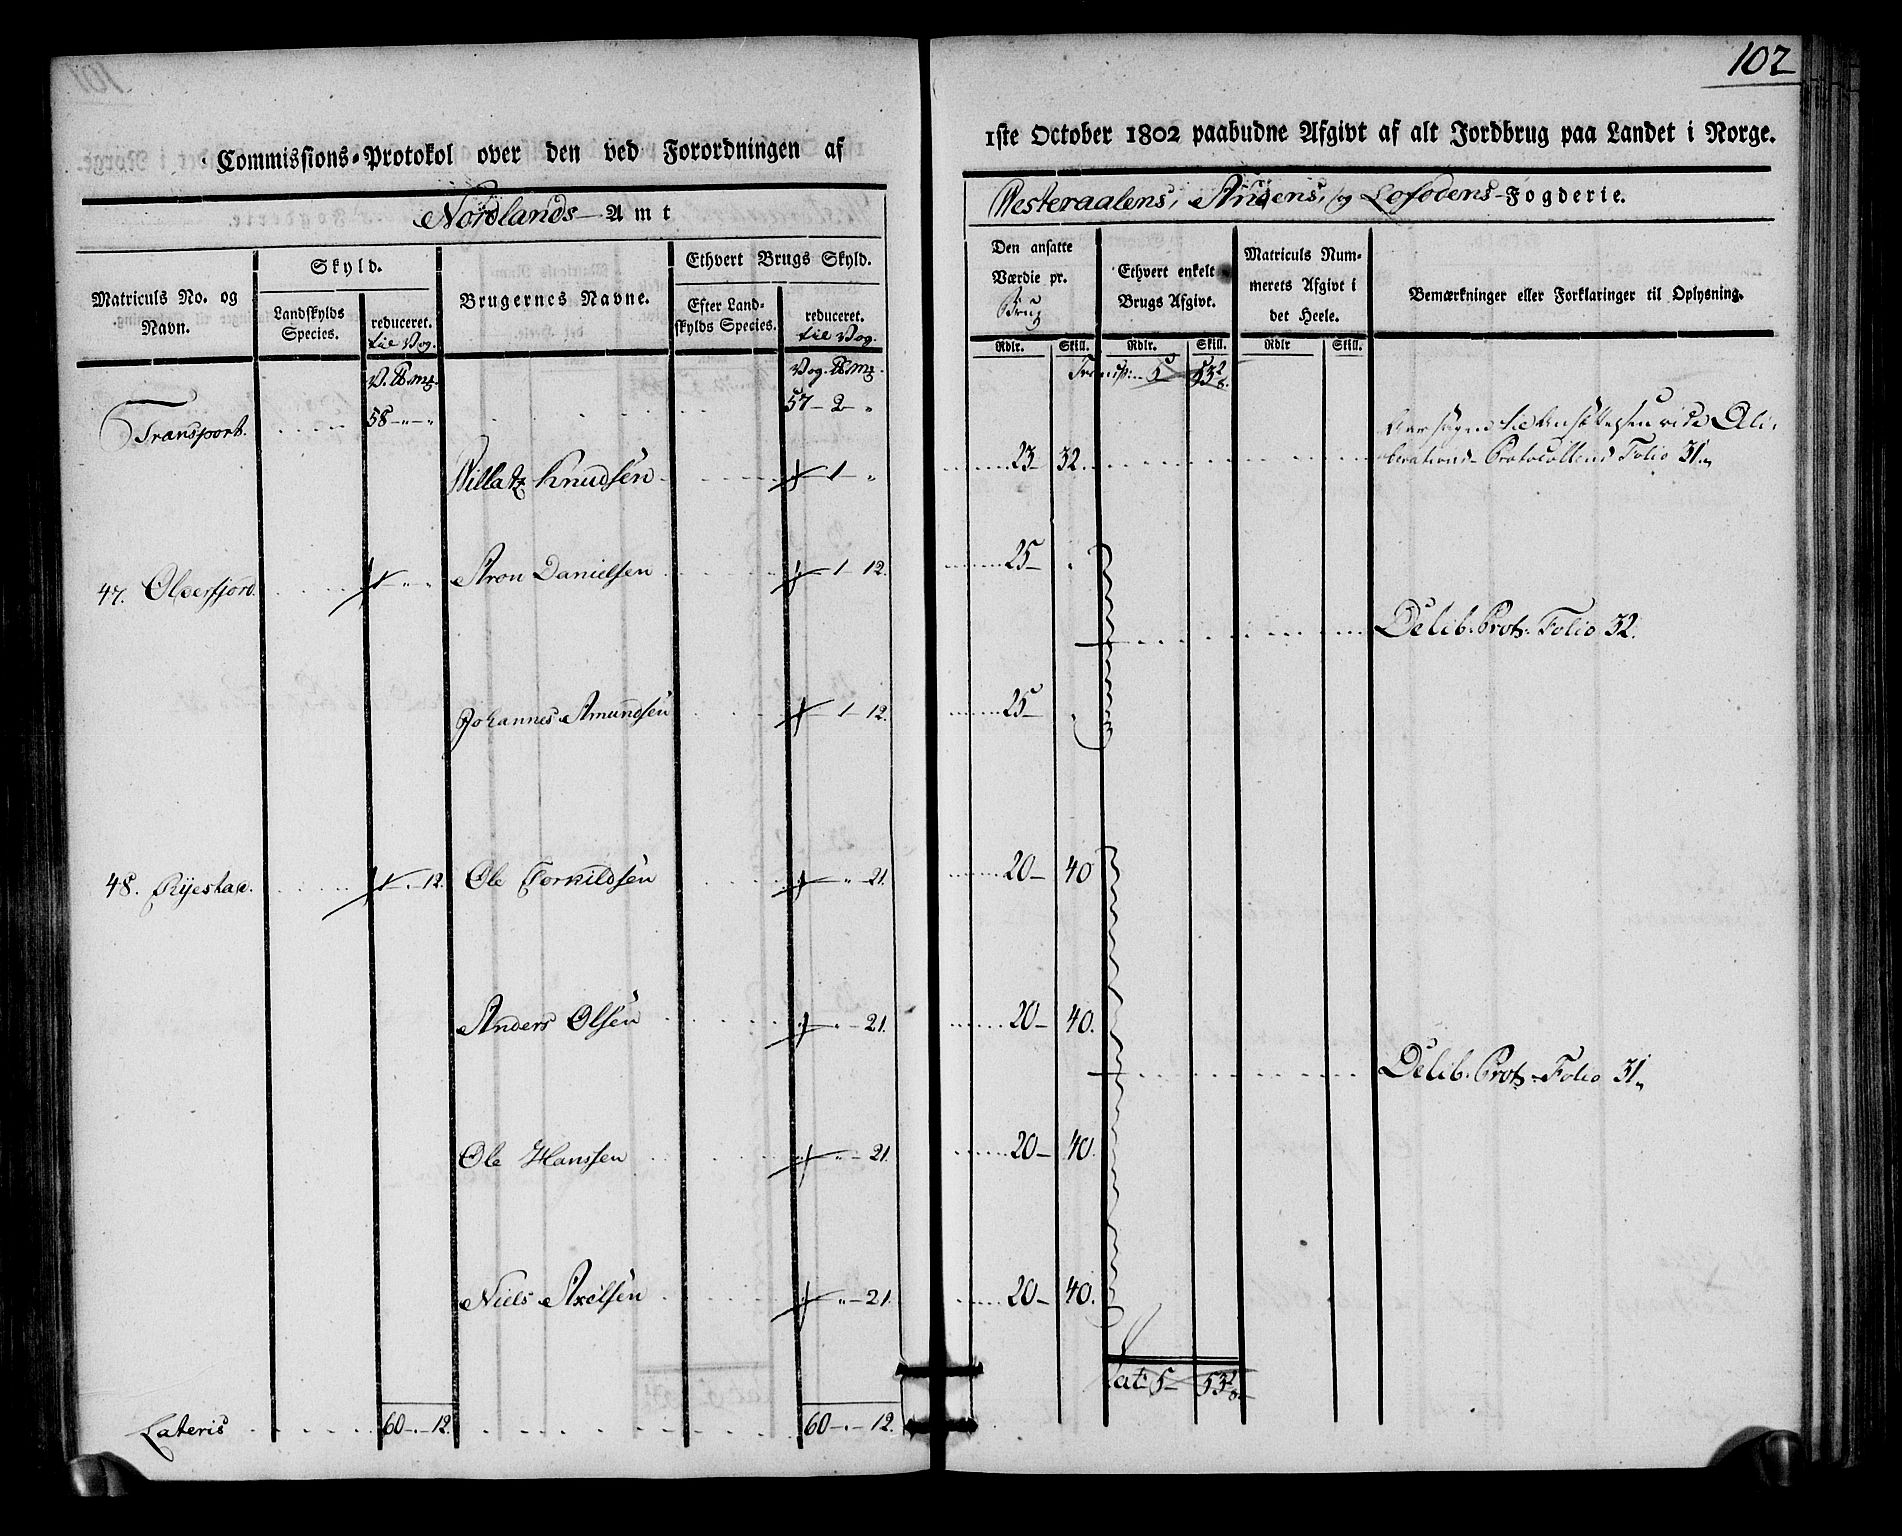 102
Commissions-Protokol over den ved Forordningen af
1ste October 1802 paabudne Afgivt af alt Jordbrug paa Landet i Norge.
Nordlands Amt
Westeraalens, Andens, og Lofodens-Fogderie.
Matriculs No. og Navn.
Skyld.
Landskylds Species.
reduceret. til Vog.
Brugernes Navne.
Ethvert Brugs Skyld.
Efter Landskylds Species.
reduceret. til Vog.
Den ansatte Værdie pr. Brug
Ethvert enkelt Brugs Afgivt.
Matriculs Nummerets Afgivt i det Heele.
Bemærkninger eller Forklaringer til Oplysning.
Rdlr. Skill. Rdlr. Skill. Rdlr Skill.
V. ℔ mg. Vog. ℔ mg. Transp: 5
Transport. 58 - " - " 57 - 2 - "
Knudsen 1 - " 23 - 32. Folio 31.
47. Olderfjord. 1 " " Aron Danielsen 1 - 12. 25 -
Delib: Prot: Folio 32.
Johannes Amundsen 1 - 12. 25 -
48. Ryestad. 1 . 12. Ole Torkildsen " - 21. 20 - 40
Anders Olsen " - 21. 20 - 40.
Delib: Prot: Folio 31.
Ole Hanssen " - 21. 20 - 40.
Niels Axelsen " - 21. 20 - 40.
Lat: 5
Lateris 60 - . - 12. 60 - . - 12.